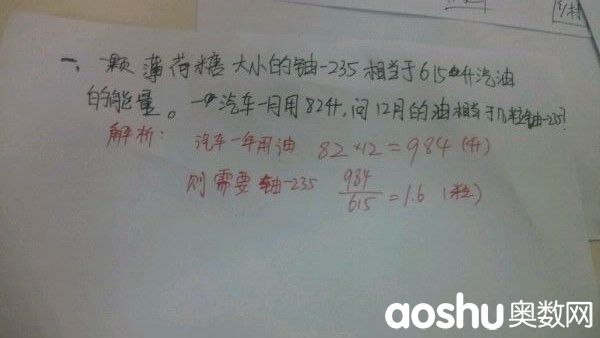 一、一颗薄荷糖大小的铀-235相当于615升汽油
的能量。一个汽车一月用82升,问12月的油相当于几粒铀-235?
解析: 汽车一年用油 82×12=984(升)
则需要铀-235 984/615=1.6(粒)
aoshu奥数网